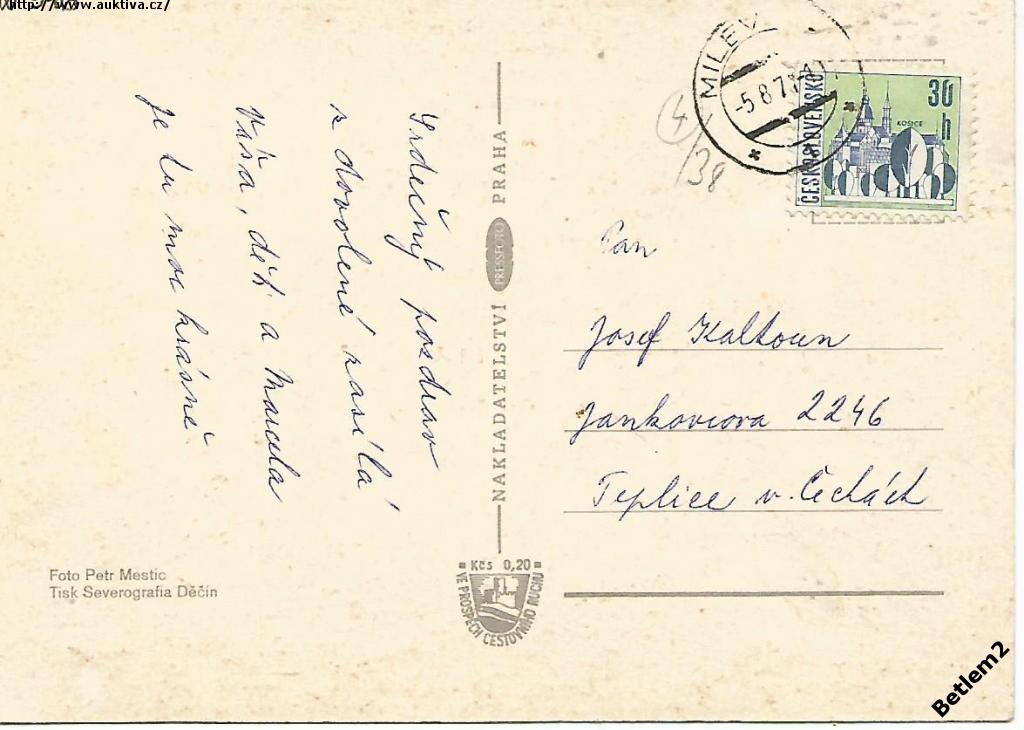 http://www.auktiva.cz/
Srdečný pozdrav
z dovolené zasílá
Věra, děti a Marcela
Je tu moc krásně.
NAKLADATELSTVÍ PRESSFOTO PRAHA
4/38
MILEV
-5.8.7
ČESKOSLOVENSKO
30
h
KOŠICE
Pan
Josef Kalkoun
Jankovcova 2246
Teplice v. Čechách
Foto Petr Mestic
Tisk Severografia Děčín
Kčs 0,20
VE PROSPĚCH CESTOVNÍHO RUCHU
Betlem2